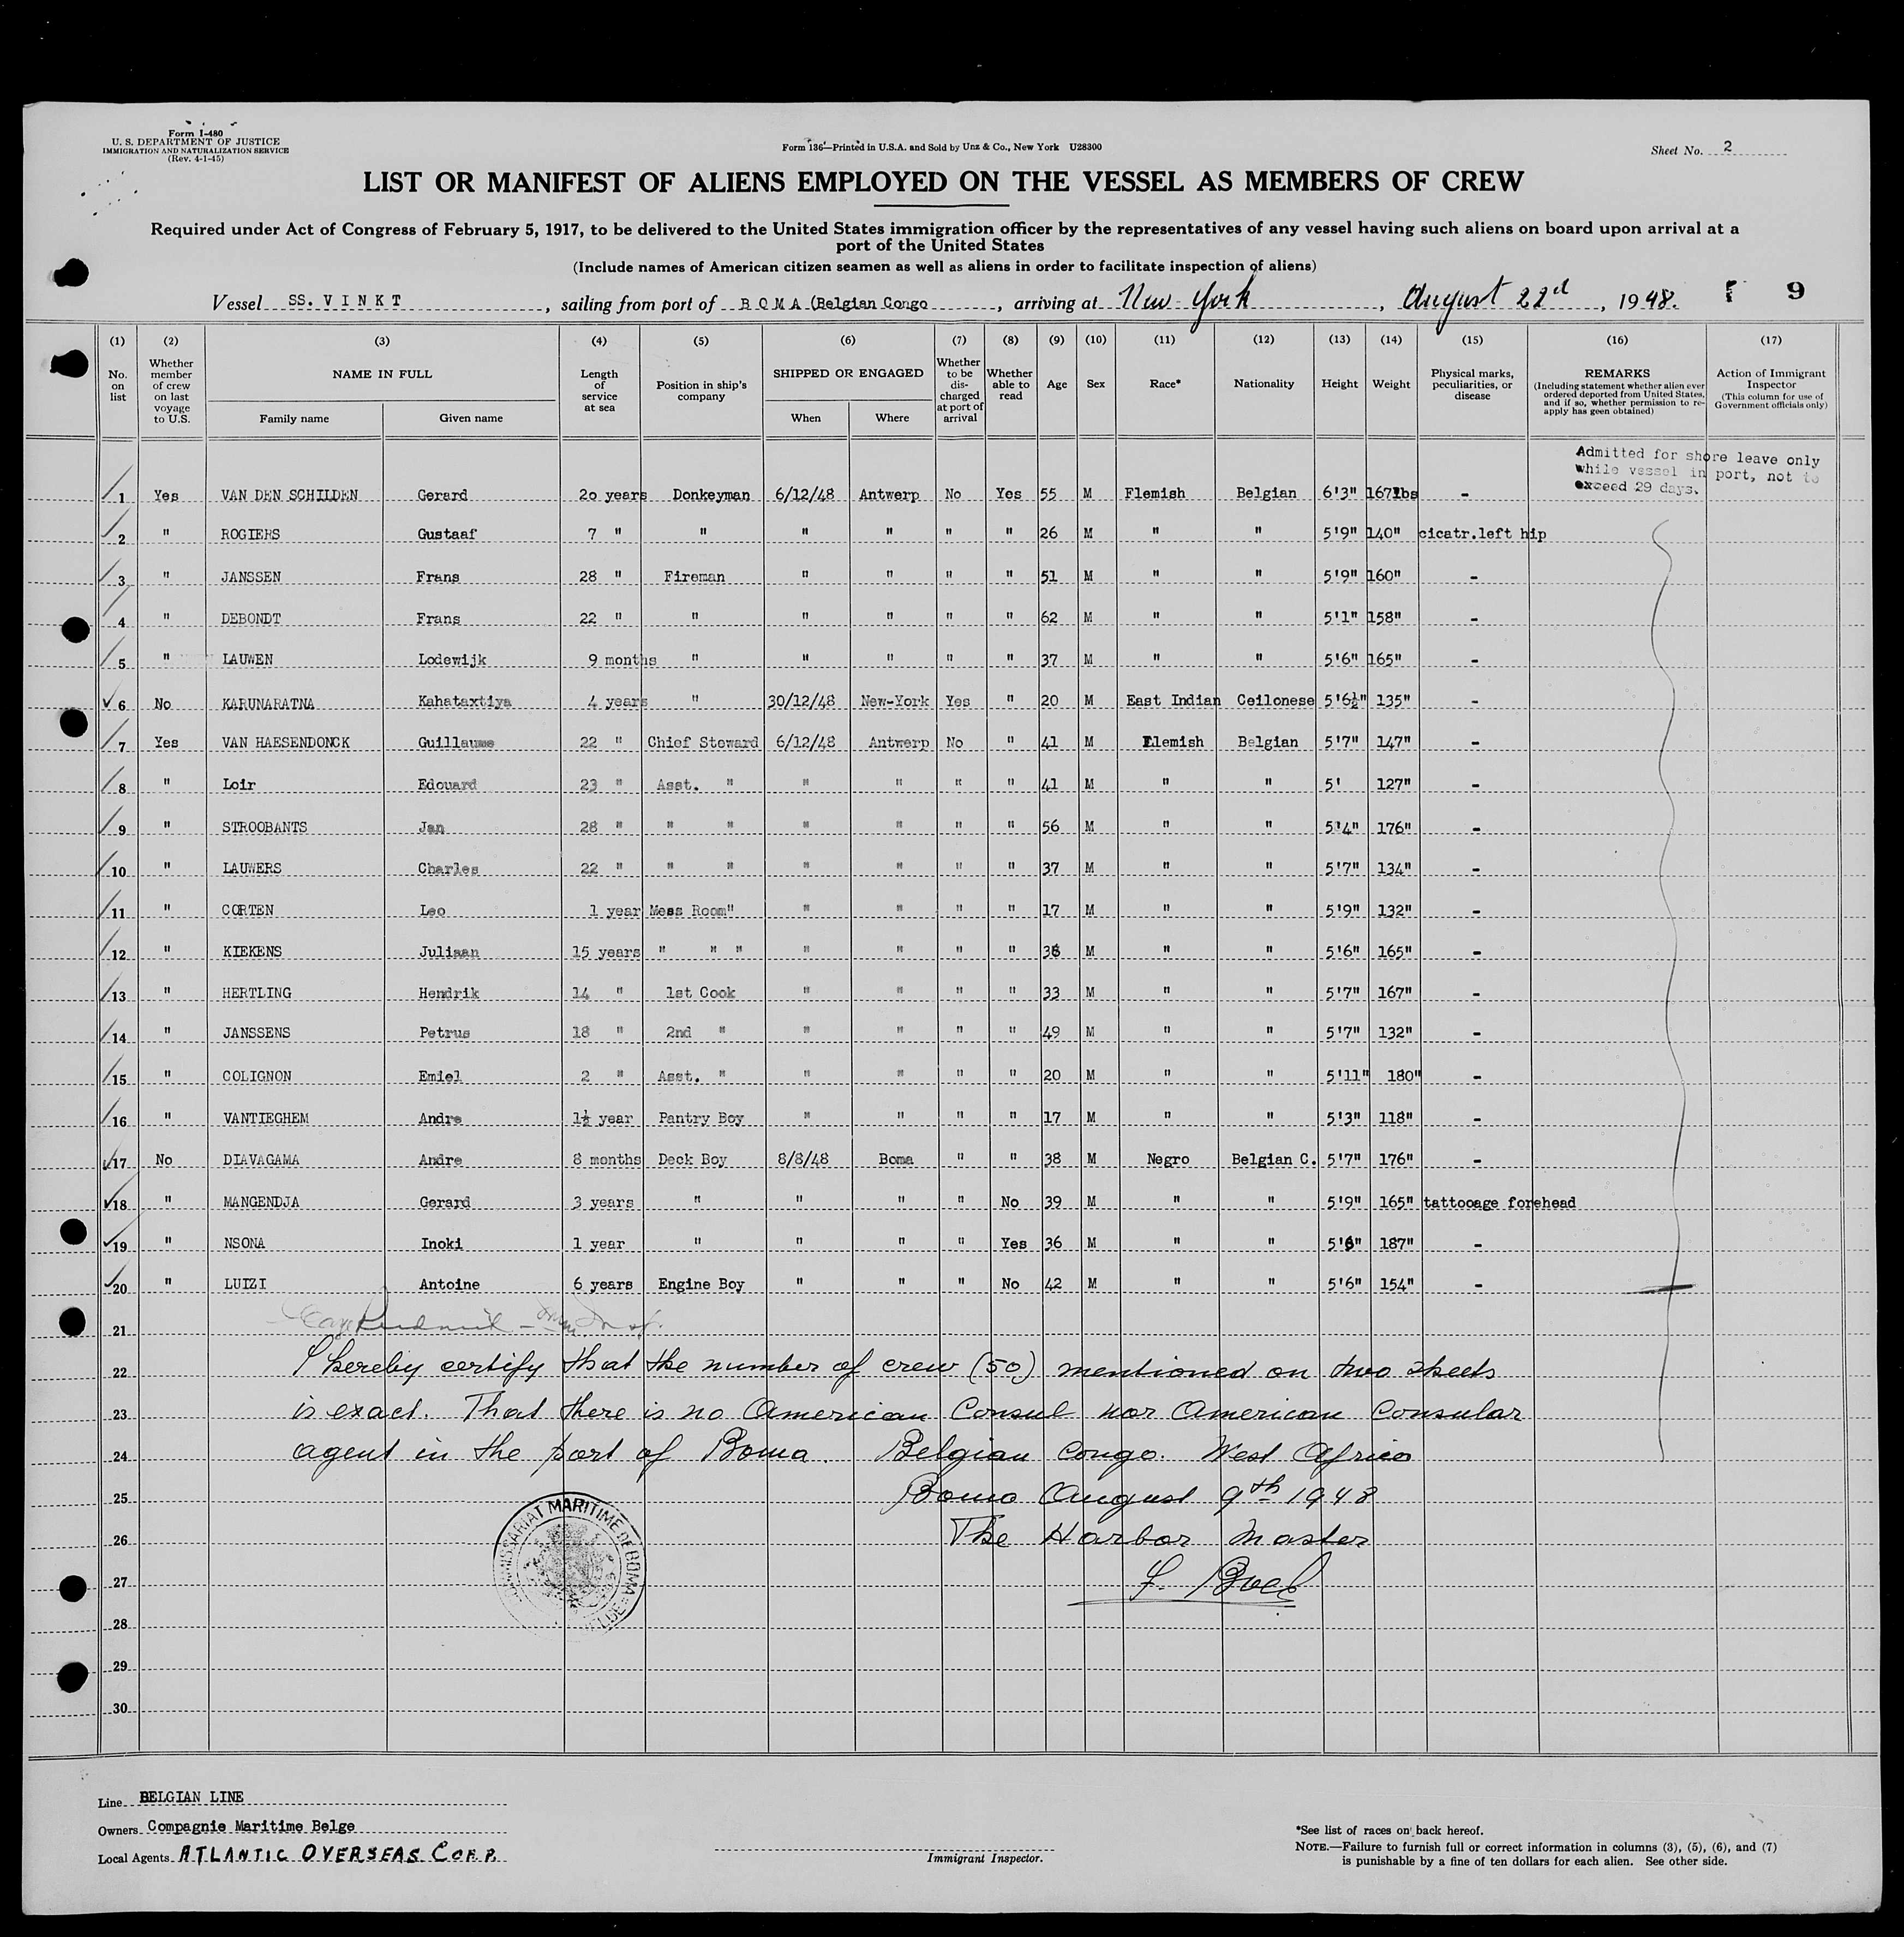 Form I-480
U. S. DEPARTMENT OF JUSTICE
IMMIGRATION AND NATURALIZATION SERVICE
(Rev. 4-1-45)
Form 136—Printed in U.S.A. and Sold by Unz & Co., New York U28300
Sheet No. 2
LIST OR MANIFEST OF ALIENS EMPLOYED ON THE VESSEL AS MEMBERS OF CREW
Required under Act of Congress of February 5, 1917, to be delivered to the United States immigration officer by the representatives of any vessel having such aliens on board upon arrival at a
port of the United States
(Include names of American citizen seamen as well as aliens in order to facilitate inspection of aliens)
Vessel SS. V I N K T, sailing from port of B O M A (Belgian Congo, arriving at New-York, August 22d, 1948. 9
(1) (2) (3) (4) (5) (6) (7) (8) (9) (10) (11) (12) (13) (14) (15) (16) (17)
No. on list
Whether member of crew on last voyage to U.S.
NAME IN FULL
Family name Given name
Length of service at sea
Position in ship's company
SHIPPED OR ENGAGED
When Where
Whether to be discharged at port of arrival
Whether able to read
Age
Sex
Race*
Nationality
Height
Weight
Physical marks, peculiarities, or disease
REMARKS
(Including statement whether alien ever ordered deported from United States, and if so, whether permission to re-apply has geen obtained)
Action of Immigrant Inspector
(This column for use of Government officials only)
Admitted for shore leave only
while vessel in port, not to
exceed 29 days.
1 Yes VAN DEN SCHILDEN Gerard 20 years Donkeyman 6/12/48 Antwerp No Yes 55 M Flemish Belgian 6'3" 167lbs -
2 " ROGIERS Gustaaf 7 " " " " " " 26 M " " 5'9" 140" cicatr.left hip
3 " JANSSEN Frans 28 " Fireman " " " " 51 M " " 5'9" 160" -
4 " DEBONDT Frans 22 " " " " " " 62 M " " 5'1" 158" -
5 " LAUWEN Lodewijk 9 months " " " " " 37 M " " 5'6" 165" -
6 No KARUNARATNA Kahataxtiya 4 years " 30/12/48 New-York Yes " 20 M East Indian Ceilonese 5'6½" 135" -
7 Yes VAN HAESENDONCK Guillaume 22 " Chief Steward 6/12/48 Antwerp No " 41 M Flemish Belgian 5'7" 147" -
8 " Loir Edouard 23 " Asst. " " " " " 41 M " " 5' 127" -
9 " STROOBANTS Jan 28 " " " " " " " 56 M " " 5'4" 176" -
10 " LAUWERS Charles 22 " " " " " " " 37 M " " 5'7" 134" -
11 " CORTEN Leo 1 year Mess Room" " " " " 17 M " " 5'9" 132" -
12 " KIEKENS Juliaan 15 years " " " " " " " 38 M " " 5'6" 165" -
13 " HERTLING Hendrik 14 " 1st Cook " " " " 33 M " " 5'7" 167" -
14 " JANSSENS Petrus 18 " 2nd " " " " " 49 M " " 5'7" 132" -
15 " COLIGNON Emiel 2 " Asst. " " " " " 20 M " " 5'11" 180" -
16 " VANTIEGHEM Andre 1½ year Pantry Boy " " " " 17 M " " 5'3" 118" -
17 No DIAVAGAMA Andre 8 months Deck Boy 8/8/48 Boma " " 38 M Negro Belgian C. 5'7" 176" -
18 " MANGENDJA Gerard 3 years " " " " No 39 M " " 5'9" 165" tattooage forehead
19 " NSONA Inoki 1 year " " " " Yes 36 M " " 5'6" 187" -
20 " LUIZI Antoine 6 years Engine Boy " " " No 42 M " " 5'6" 154" -
21
22 I hereby certify that the number of crew (50) mentioned on two sheets
23 is exact. That there is no American Consul nor American Consular
24 agent in the port of Boma. Belgian Congo. West Africa
25 Boma August 9th 1948
26 The Harbor Master
27
28
29
30
COMMISSARIAT MARITIME DE BOMA
Line BELGIAN LINE
Owners Compagnie Maritime Belge
Local Agents ATLANTIC OVERSEAS CORP.
Immigrant Inspector.
*See list of races on back hereof.
NOTE.—Failure to furnish full or correct information in columns (3), (5), (6), and (7)
is punishable by a fine of ten dollars for each alien. See other side.